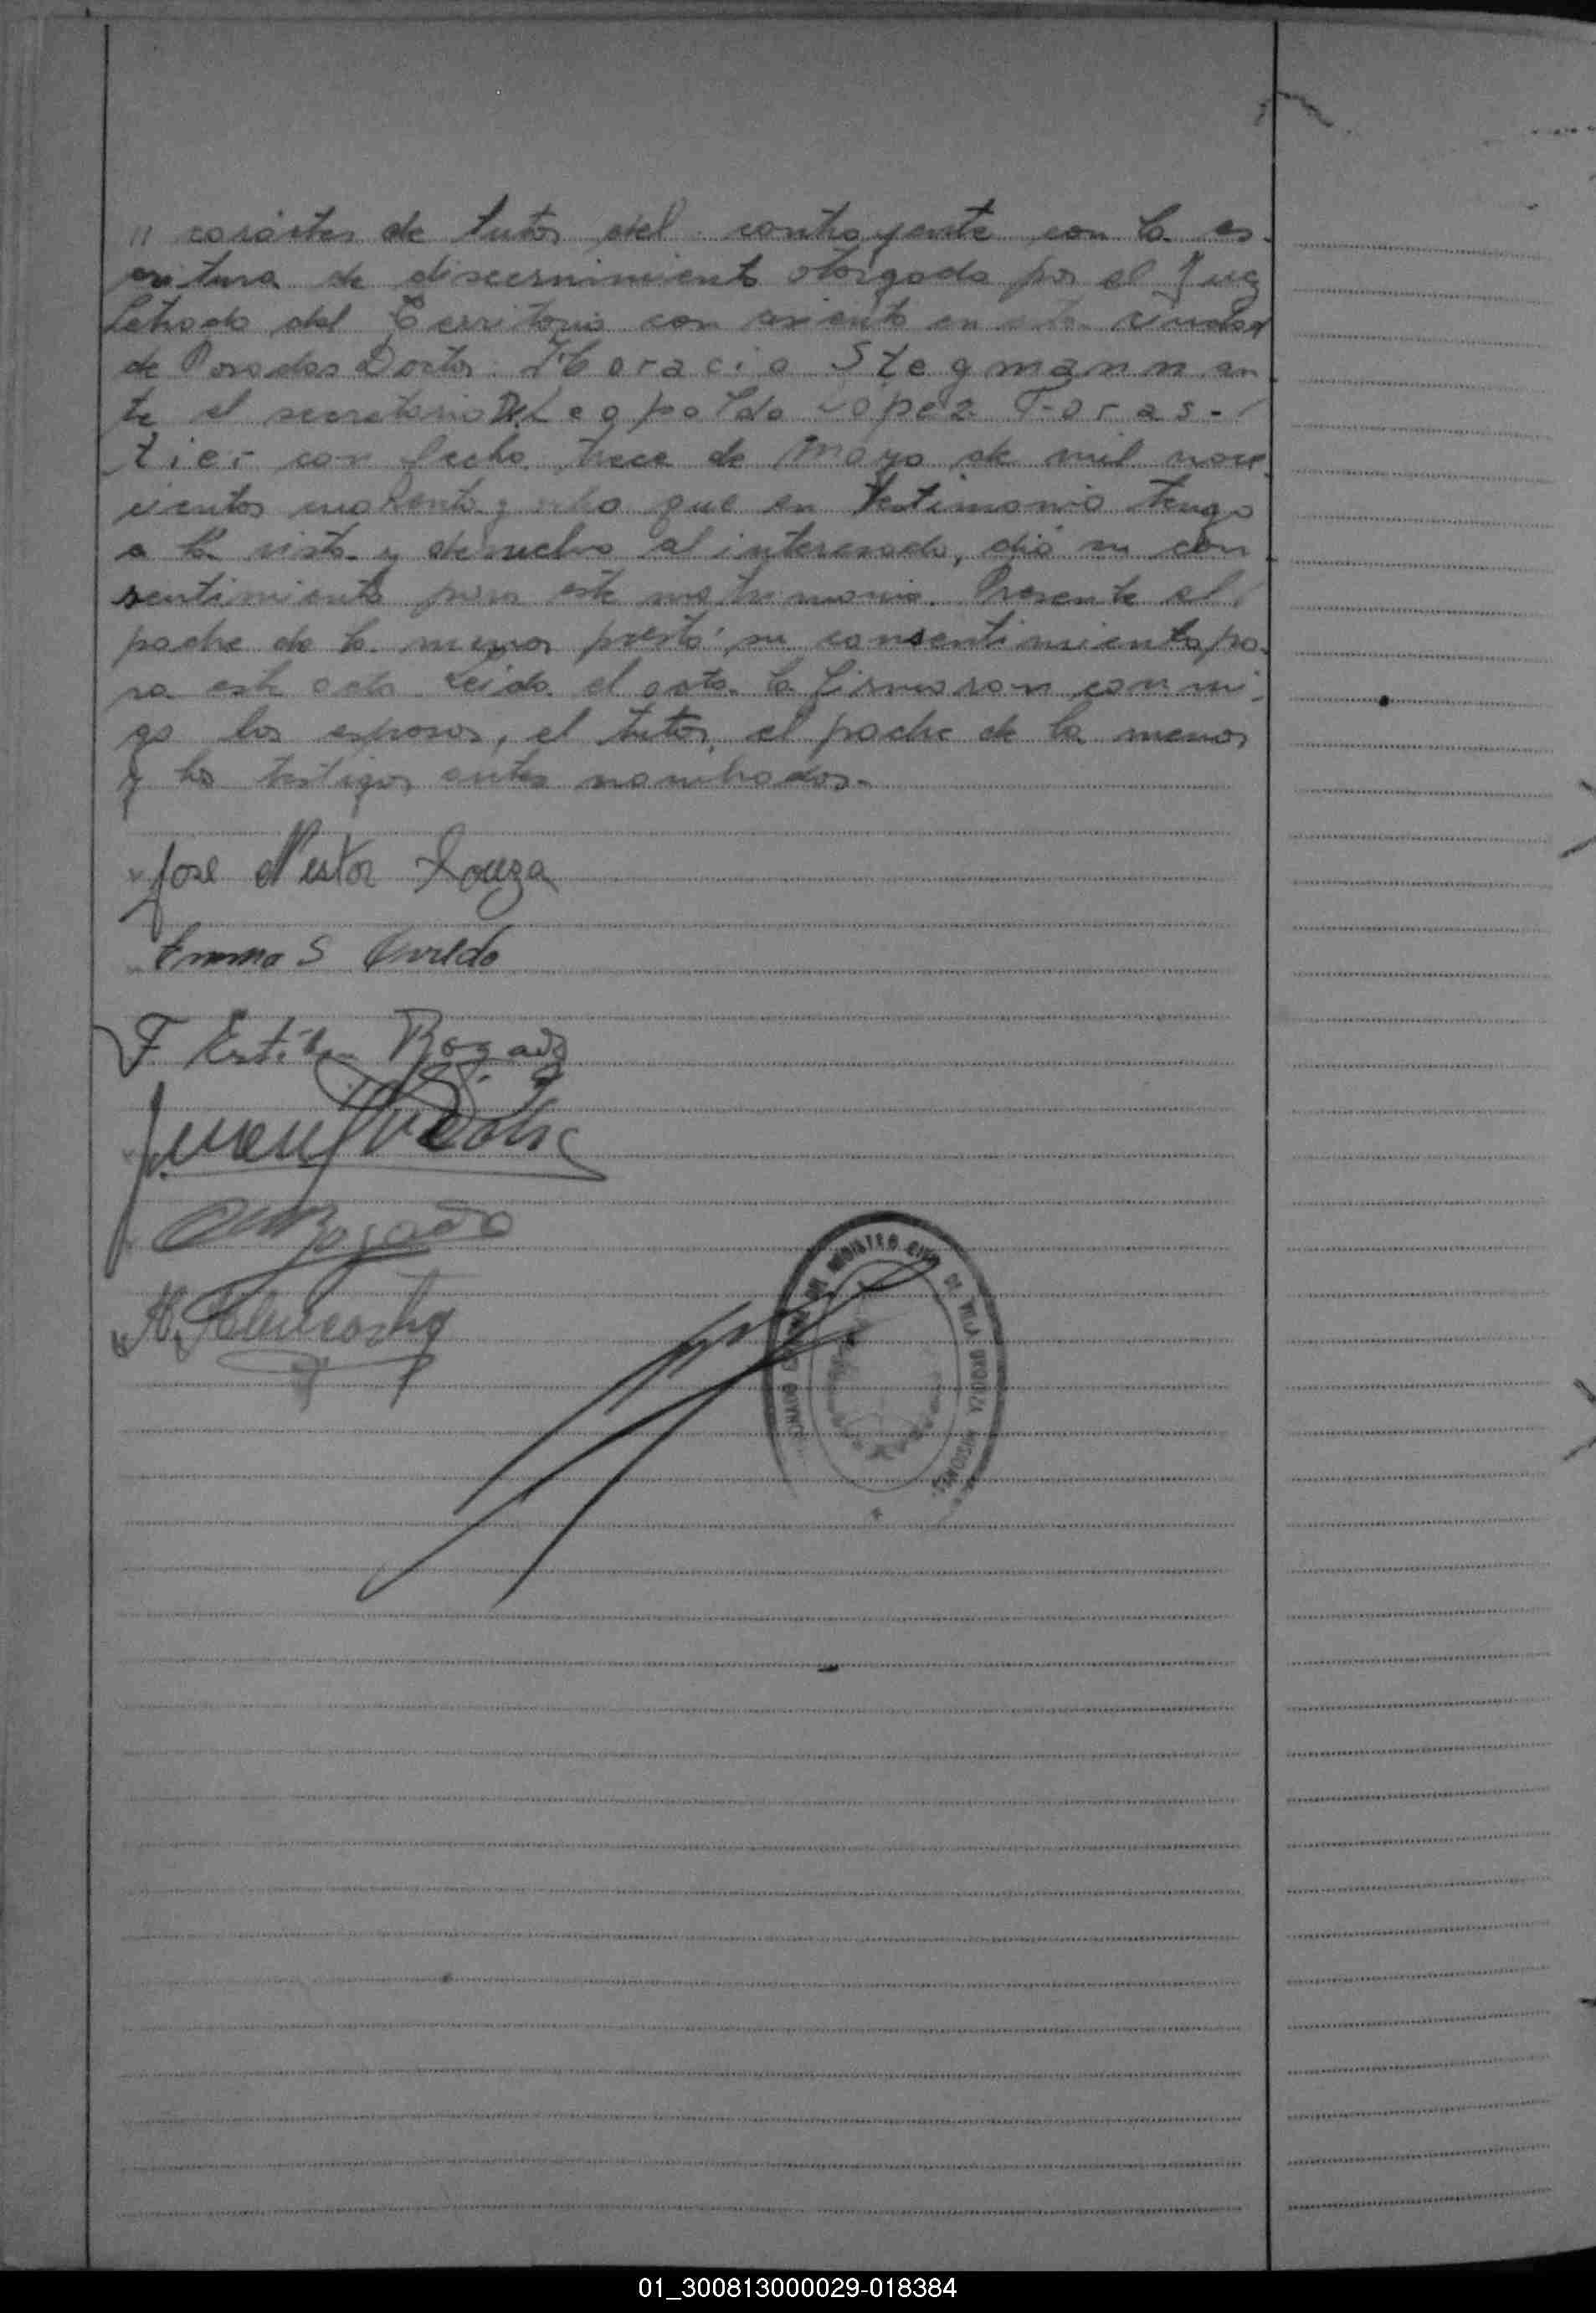 " carácter de tutor del contrayente con la es-
critura de discernimiento otorgada por el Juez
Letrado del Territorio con asiento en esta ciudad
de Posadas Doctor Horacio Stegmann an-
te el secretario D. Leopoldo Lopez Foras-
tier con fecha trece de Mayo de mil nove
cientos cuarenta y ocho que en testimonio tengo
a la vista y devuelvo al interesado, dió su con
sentimiento para este matrimonio. Presente el
padre de la menor prestó su consentimiento pa-
ra este acto. Leida el acta la firmaron conmi-
go los esposos, el tutor, el padre de la menor
y los testigos antes nombrados.-
Jose Nestor Souza
Emma S Oviedo
F Esteban Bogado
Juan
Bogado
H.
DEL REGISTRO CIVIL DE VILLA URQUIZA MISIONES
01_300813000029-018384